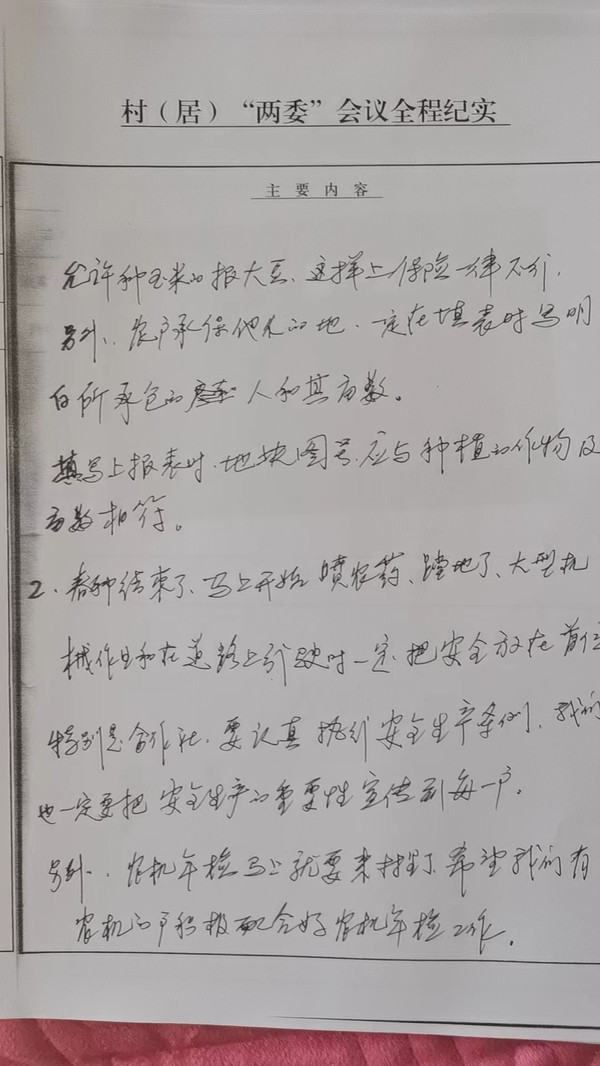 村（居）“两委”会议全程纪实
主要内容
允许种玉米的报大豆、这样上保险一律不行,
另外、农户承保他人的地、一定在填表时写明
白所承包的 人和其亩数。
填写上报表时、地块图号、应与种植的作物及
亩数相符。
2、春种结束了、马上开始喷农药、蹚地了、大型机
械作业和在道路上行驶时一定把安全放在首位
特别是合作社、要认真执行安全生产条例、我们
也一定要把安全生产的重要性宣传到每一户。
另外、农机年检马上就要来村了、希望我们有
农机的户积极配合好农机年检工作。